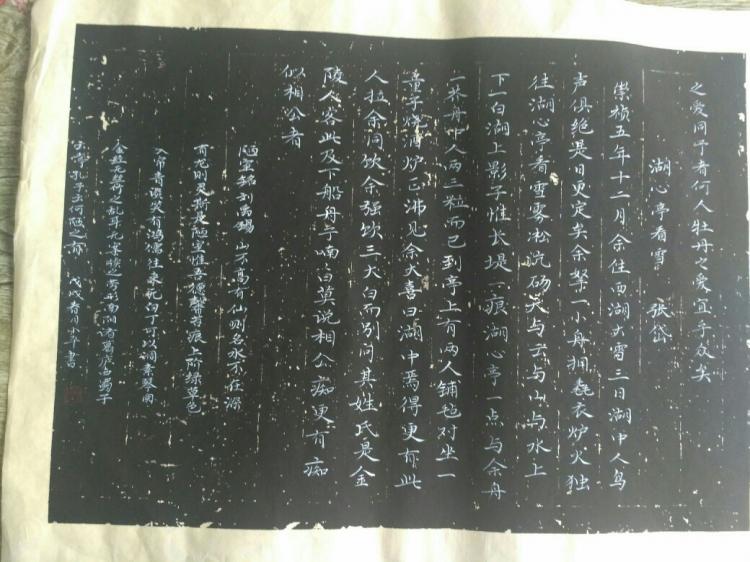 之爱同予者何人牡丹之爱宜乎众矣
湖心亭看雪 张岱
崇祯五年十二月余住西湖大雪三日湖中人鸟
声俱绝是日更定矣余拏一小舟拥毳衣炉火独
往湖心亭看雪雾凇沆砀天与云与山与水上
下一白湖上影子惟长堤一痕湖心亭一点与余舟
一芥舟中人两三粒而已到亭上有两人铺毡对坐一
童子烧酒炉正沸见余大喜曰湖中焉得更有此
人拉余同饮余强饮三大白而别问其姓氏是金
陵人客此及下船舟子喃喃曰莫说相公痴更有痴
似相公者
陋室铭刘禹锡 山不高有仙则名水不在深
有龙则灵斯是陋室惟吾德馨苔痕上阶绿草色
入帘青谈笑有鸿儒往来无白丁可以调素琴阅
金经无丝竹之乱耳无案牍之劳形南阳诸葛庐西蜀子
云亭孔子云何陋之有 戊戌春月 书